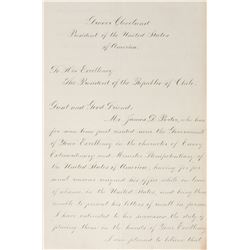 Grover Cleveland
President of the United States
of America.
To His Excellency
The President of the Republic of Chile.
Great and Good Friend:
Mr. James D. Porter, who has
for some time past resided near the Government
of Your Excellency in the character of Envoy
Extraordinary and Minister Plenipotentiary of
the United States of America; having for per-
sonal reasons resigned his office while on leave
of absence in the United States, and being thus
unable to present his letters of recall in person
I have entrusted to his successor the duty of
placing them in the hands of Your Excellency
I am pleased to believe that